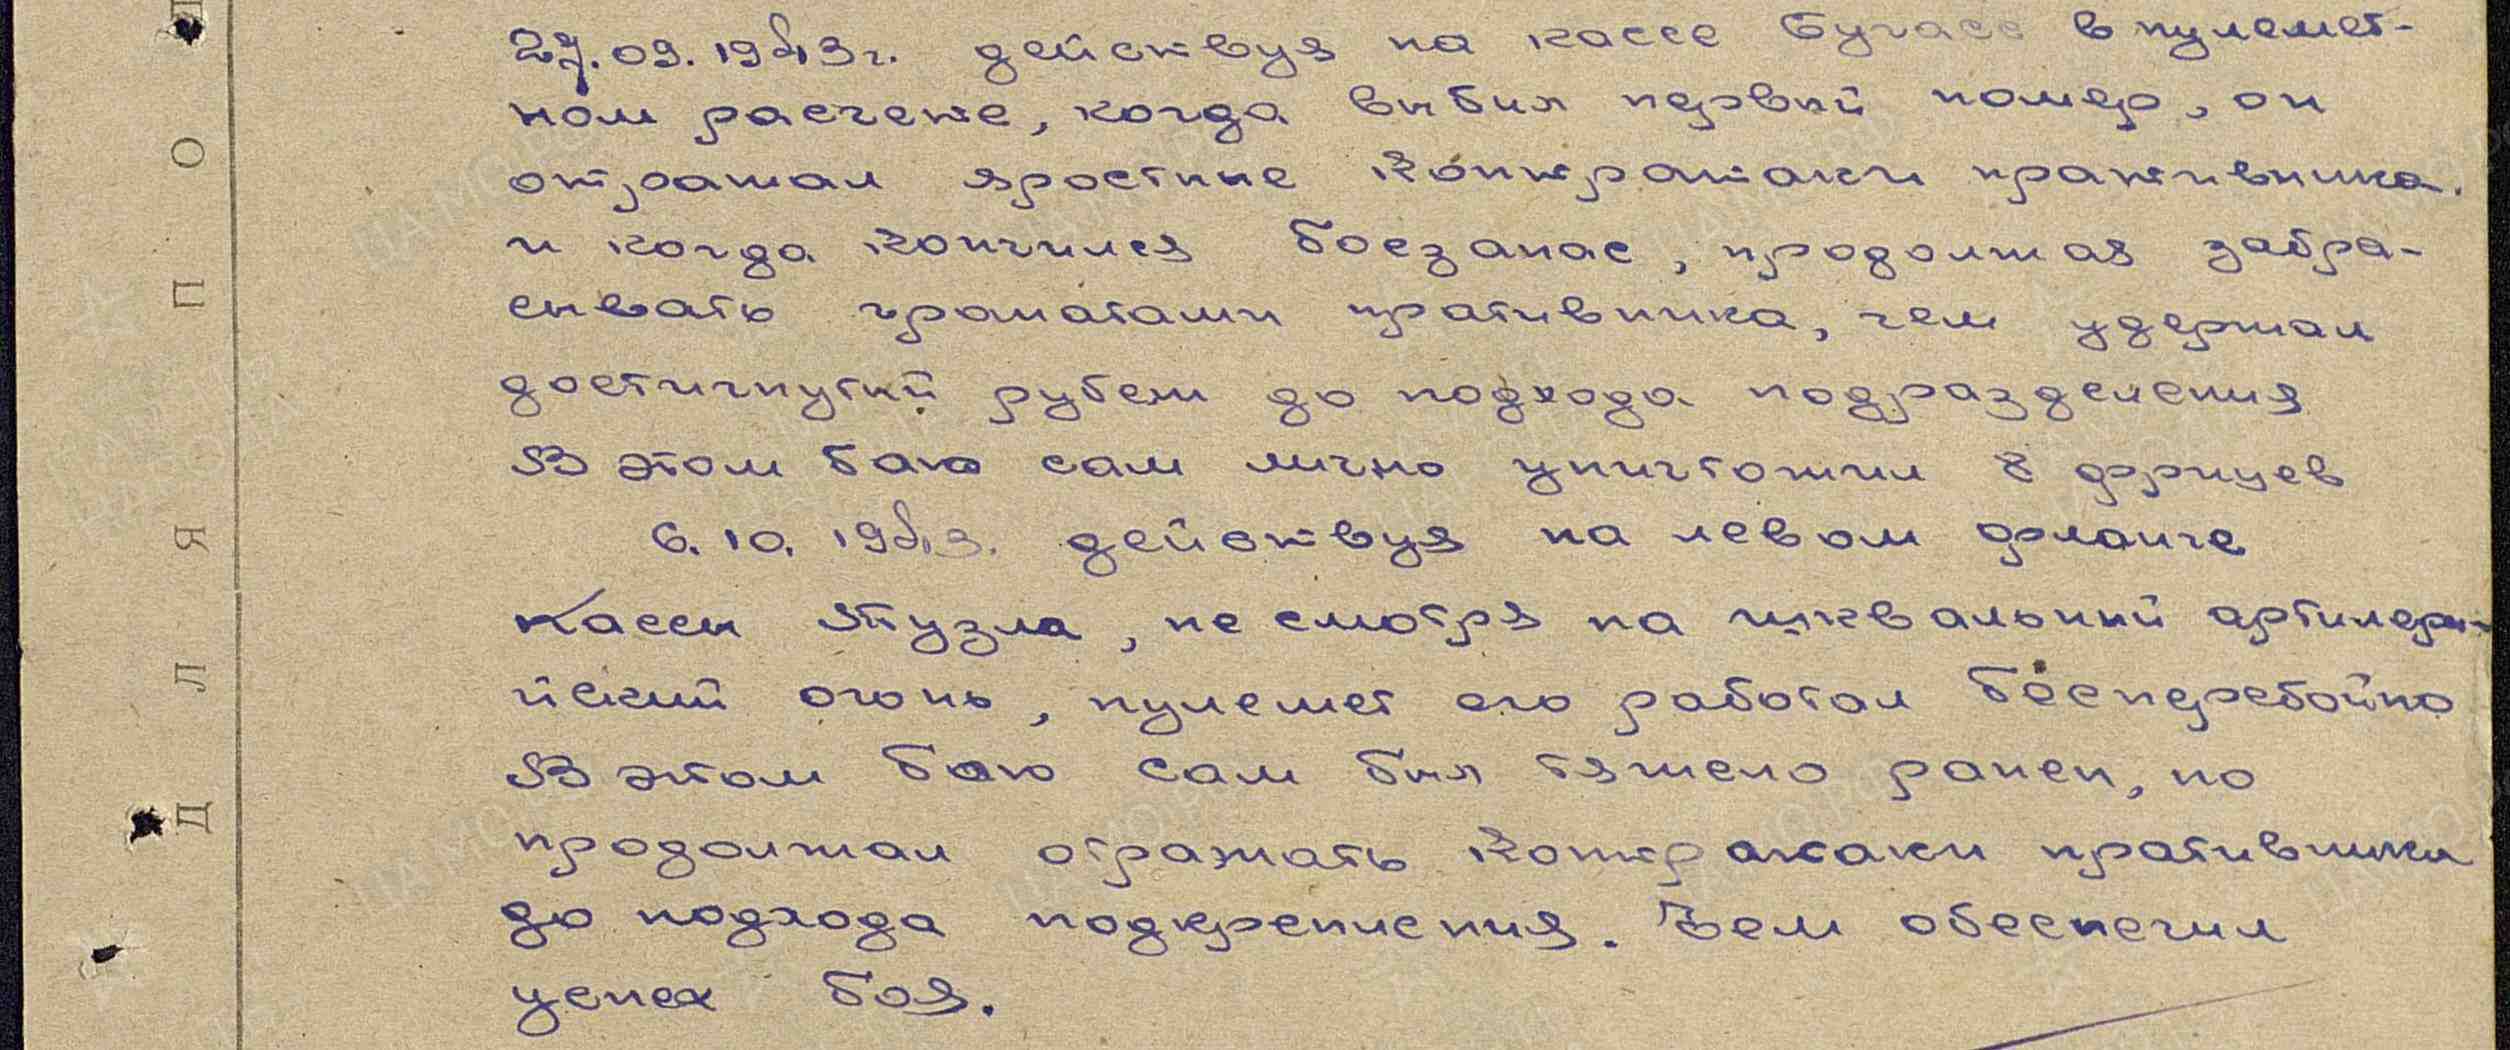 27.09.1943г. действуя на кассе Бугасе в пулемет-
ном расчете, когда выбыл первый номер, он
отражал яростные контратаки пративника.
и когда кончился боезапас, продолжая забра-
сывать гранатами пративника, чем удержал
достигнутый рубеж до подхода подразделения
В этом баю сам лично уничтожил 8 фрицев
6.10.1943. действуя на левом фланге
Кассы Тузла, не смотря на шквальный артилери-
йский огонь, пулемет его работал бесперебойно
В этом баю сам был тяжело ранен, но
продолжал отражать контратаки пративника
до подхода подкрепления. Чем обеспечил
успех боя.
Д Л Я П О